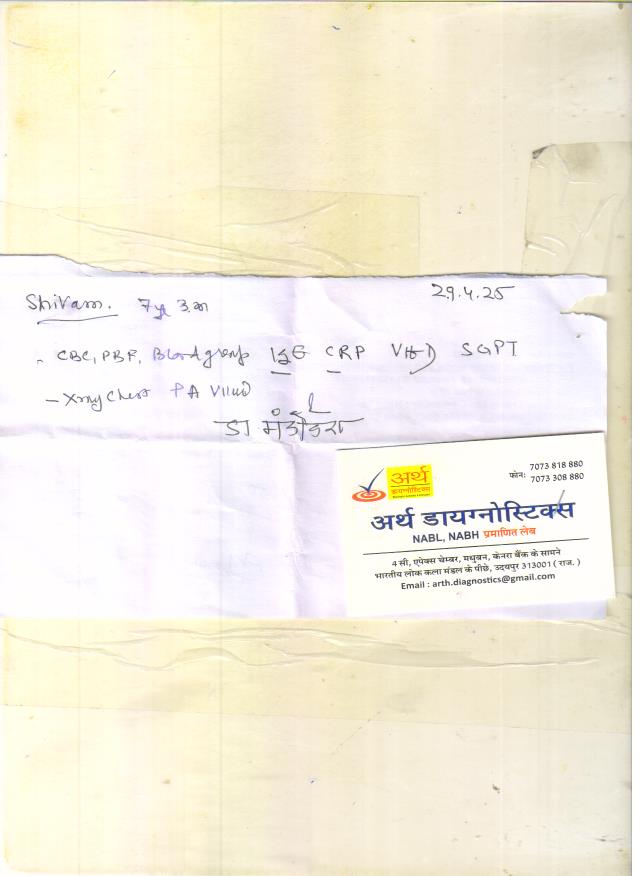 Shivam. 7 yr 3 m
29.4.25
- CBC, PBF, Blood group IgE CRP Vit D SGPT
- Xray Chest PA View
डा
अर्थ
डायग्नोस्टिक्स
फोन: 7073 818 880
7073 308 880
अर्थ डायग्नोस्टिक्स
NABL, NABH प्रमाणित लेब
4 सी, एपेक्स चेम्बर, मधुबन, केनरा बैंक के सामने
भारतीय लोक कला मंडल के पीछे, उदयपुर 313001 ( राज. )
Email : arth.diagnostics@gmail.com